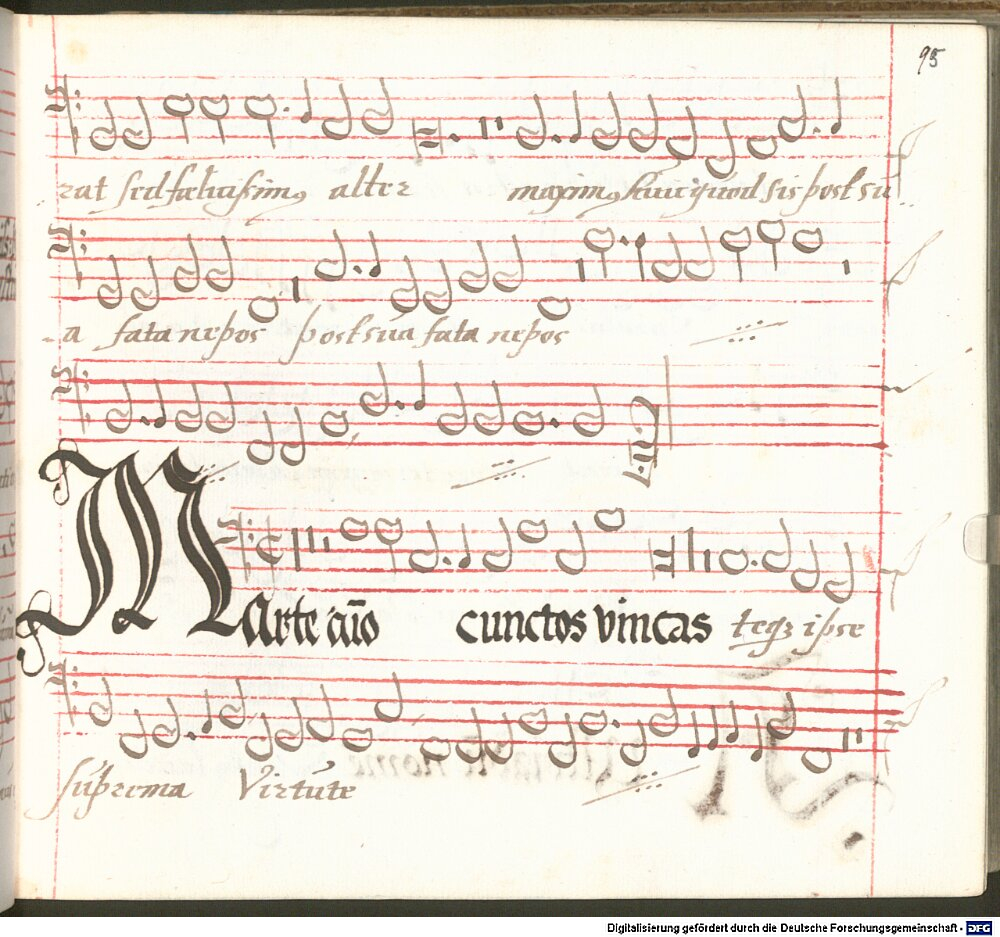 95
rat sed fœlicissimꝰ alter maximꝰ huic quod sis post su
a fata nepos post sua fata nepos
MArte tuo cunctos vincas teqꝫ ipse
suprema Virtute
Digitalisierung gefördert durch die Deutsche Forschungsgemeinschaft - DFG